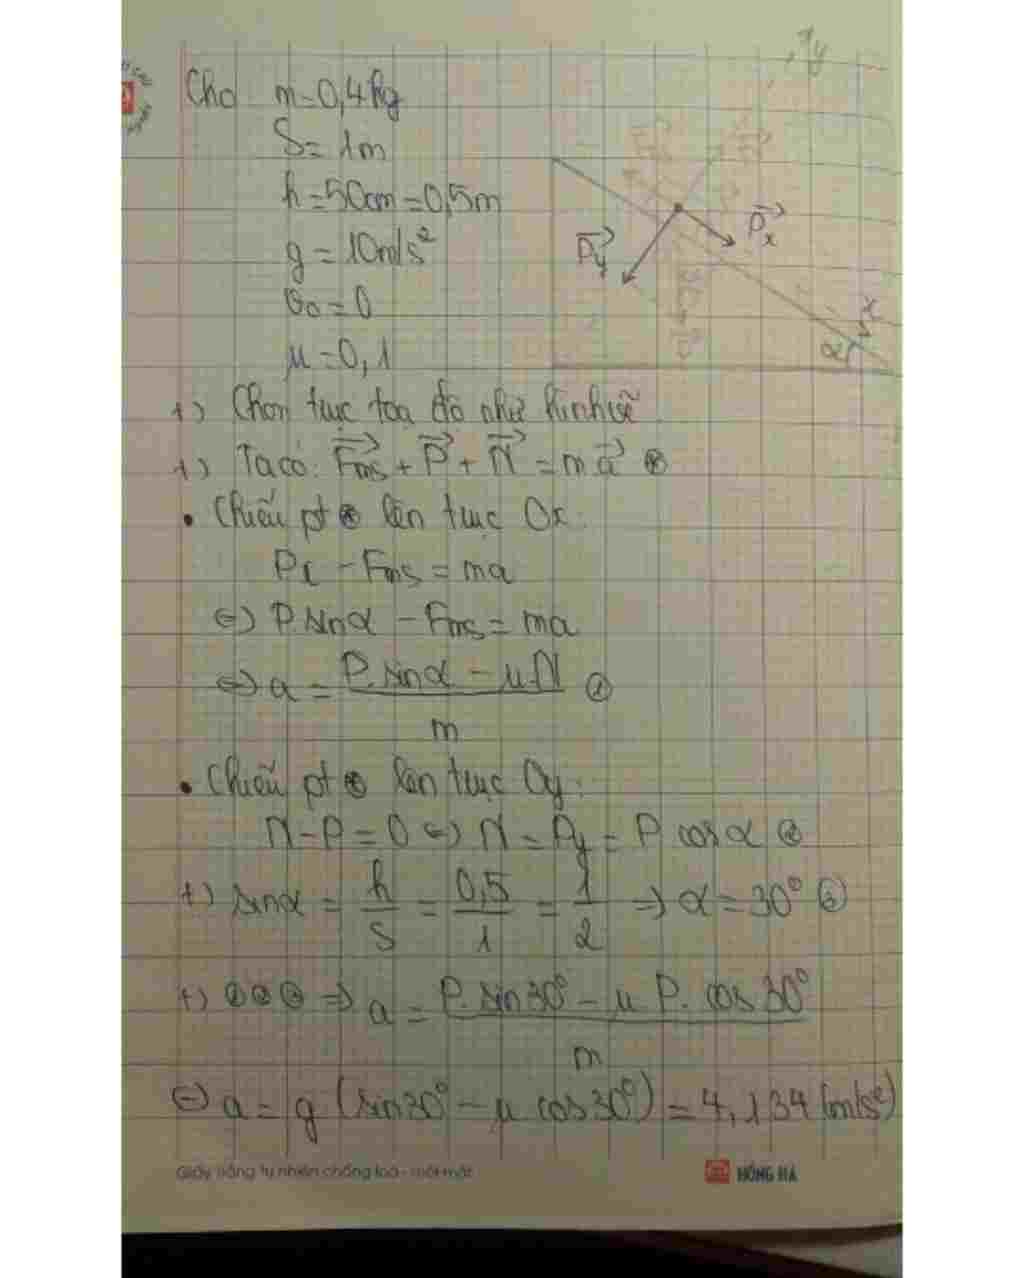 Cho m=0,4kg
S= 1m
h=50cm=0,5m
g = 10m/s²
v₀=0
μ=0,1
y
Py
Px
x
α
+) Chọn trục toạ độ như hình vẽ
+) Ta có: Fms + P + N = ma ⊛
• Chiếu pt ⊛ lên trục Ox:
Px - Fms = ma
⇔ P.sinα - Fms = ma
⇔ a = P.sinα - μ.N / m ①
• Chiếu pt ⊛ lên trục Oy:
N-P=0 ⇔ N = Py = P cosα ②
+) sinα = h/S = 0,5/1 = 1/2 ⇒ α=30° ③
+) ①②③ ⇒ a = P.sin30° - μ P. cos30° / m
⇔ a = g (sin30° - μ cos30°) = 4,134 (m/s²)
Giấy trắng tự nhiên chống loá - mỏi mắt
HỒNG HÀ